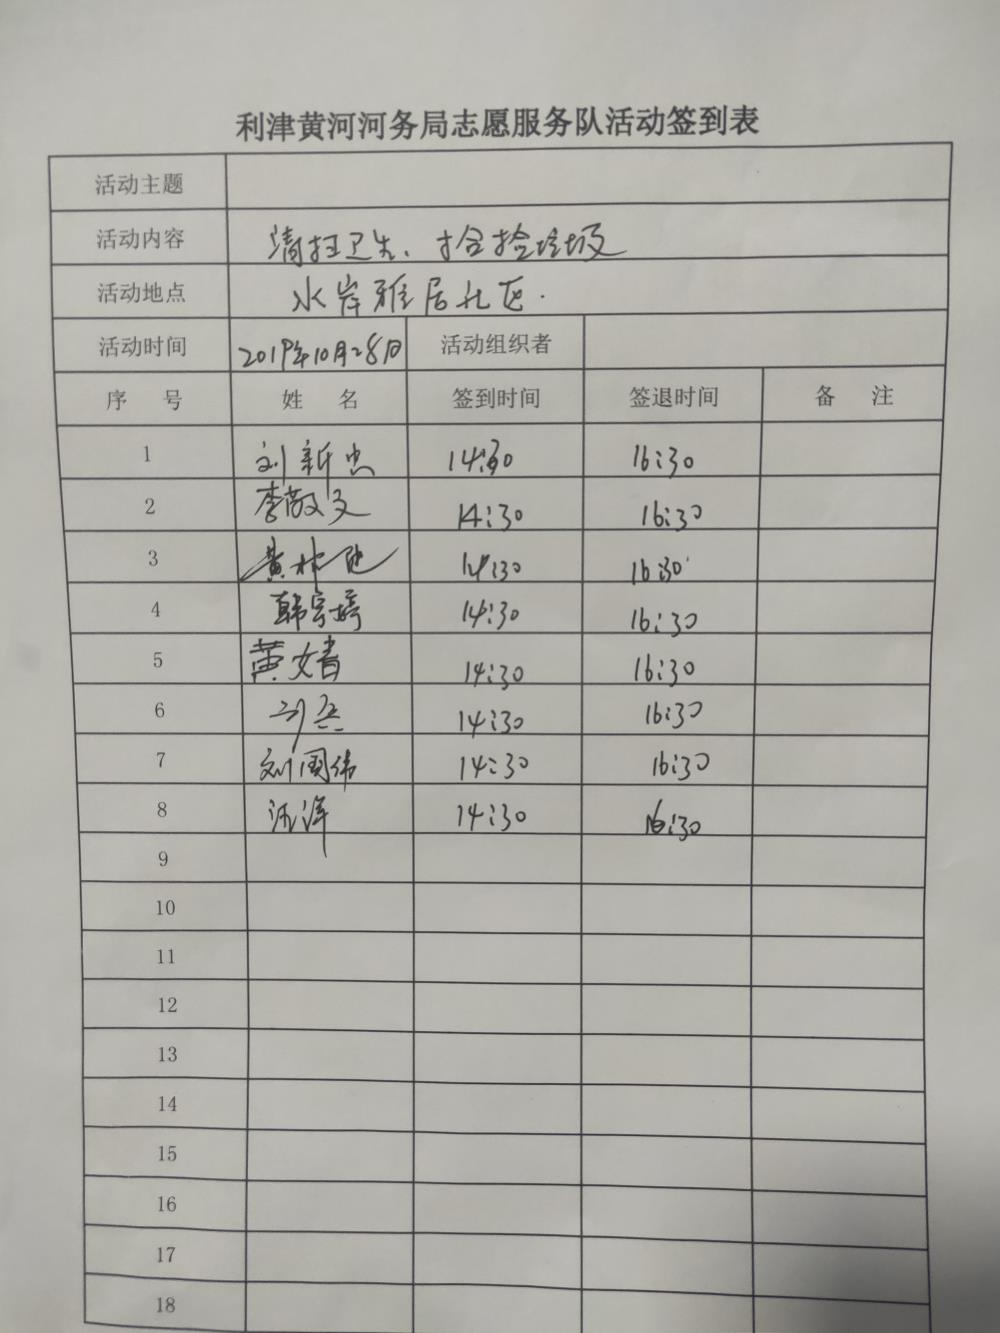 利津黄河河务局志愿服务队活动签到表
活动主题
活动内容 清扫卫生、拾捡垃圾
活动地点 水岸雅居社区.
活动时间 2019年10月28日 活动组织者
序 号 姓 名 签到时间 签退时间 备 注
1 刘新忠 14:30 16:30
2 李敬文 14:30 16:30
3 黄 14:30 16:30
4 韩宇婷 14:30 16:30
5 黄婧 14:30 16:30
6 14:30 16:30
7 刘国伟 14:30 16:30
8 洋 14:30 16:30
9
10
11
12
13
14
15
16
17
18